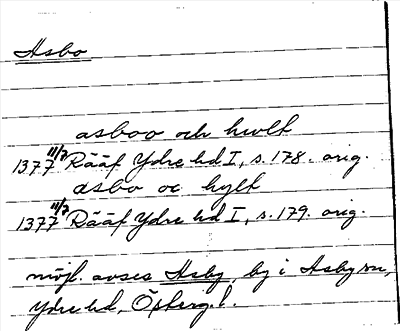 Asbo
asboo och hwlt
1377 11/7 Rääf Ydre hd I, s. 178. orig.
asbo oc hylt
1377 11/7 Rääf Ydre hd I, s. 179. orig.
möjl. avses Asby, by i Asby sn,
Ydre hd, Östergl.